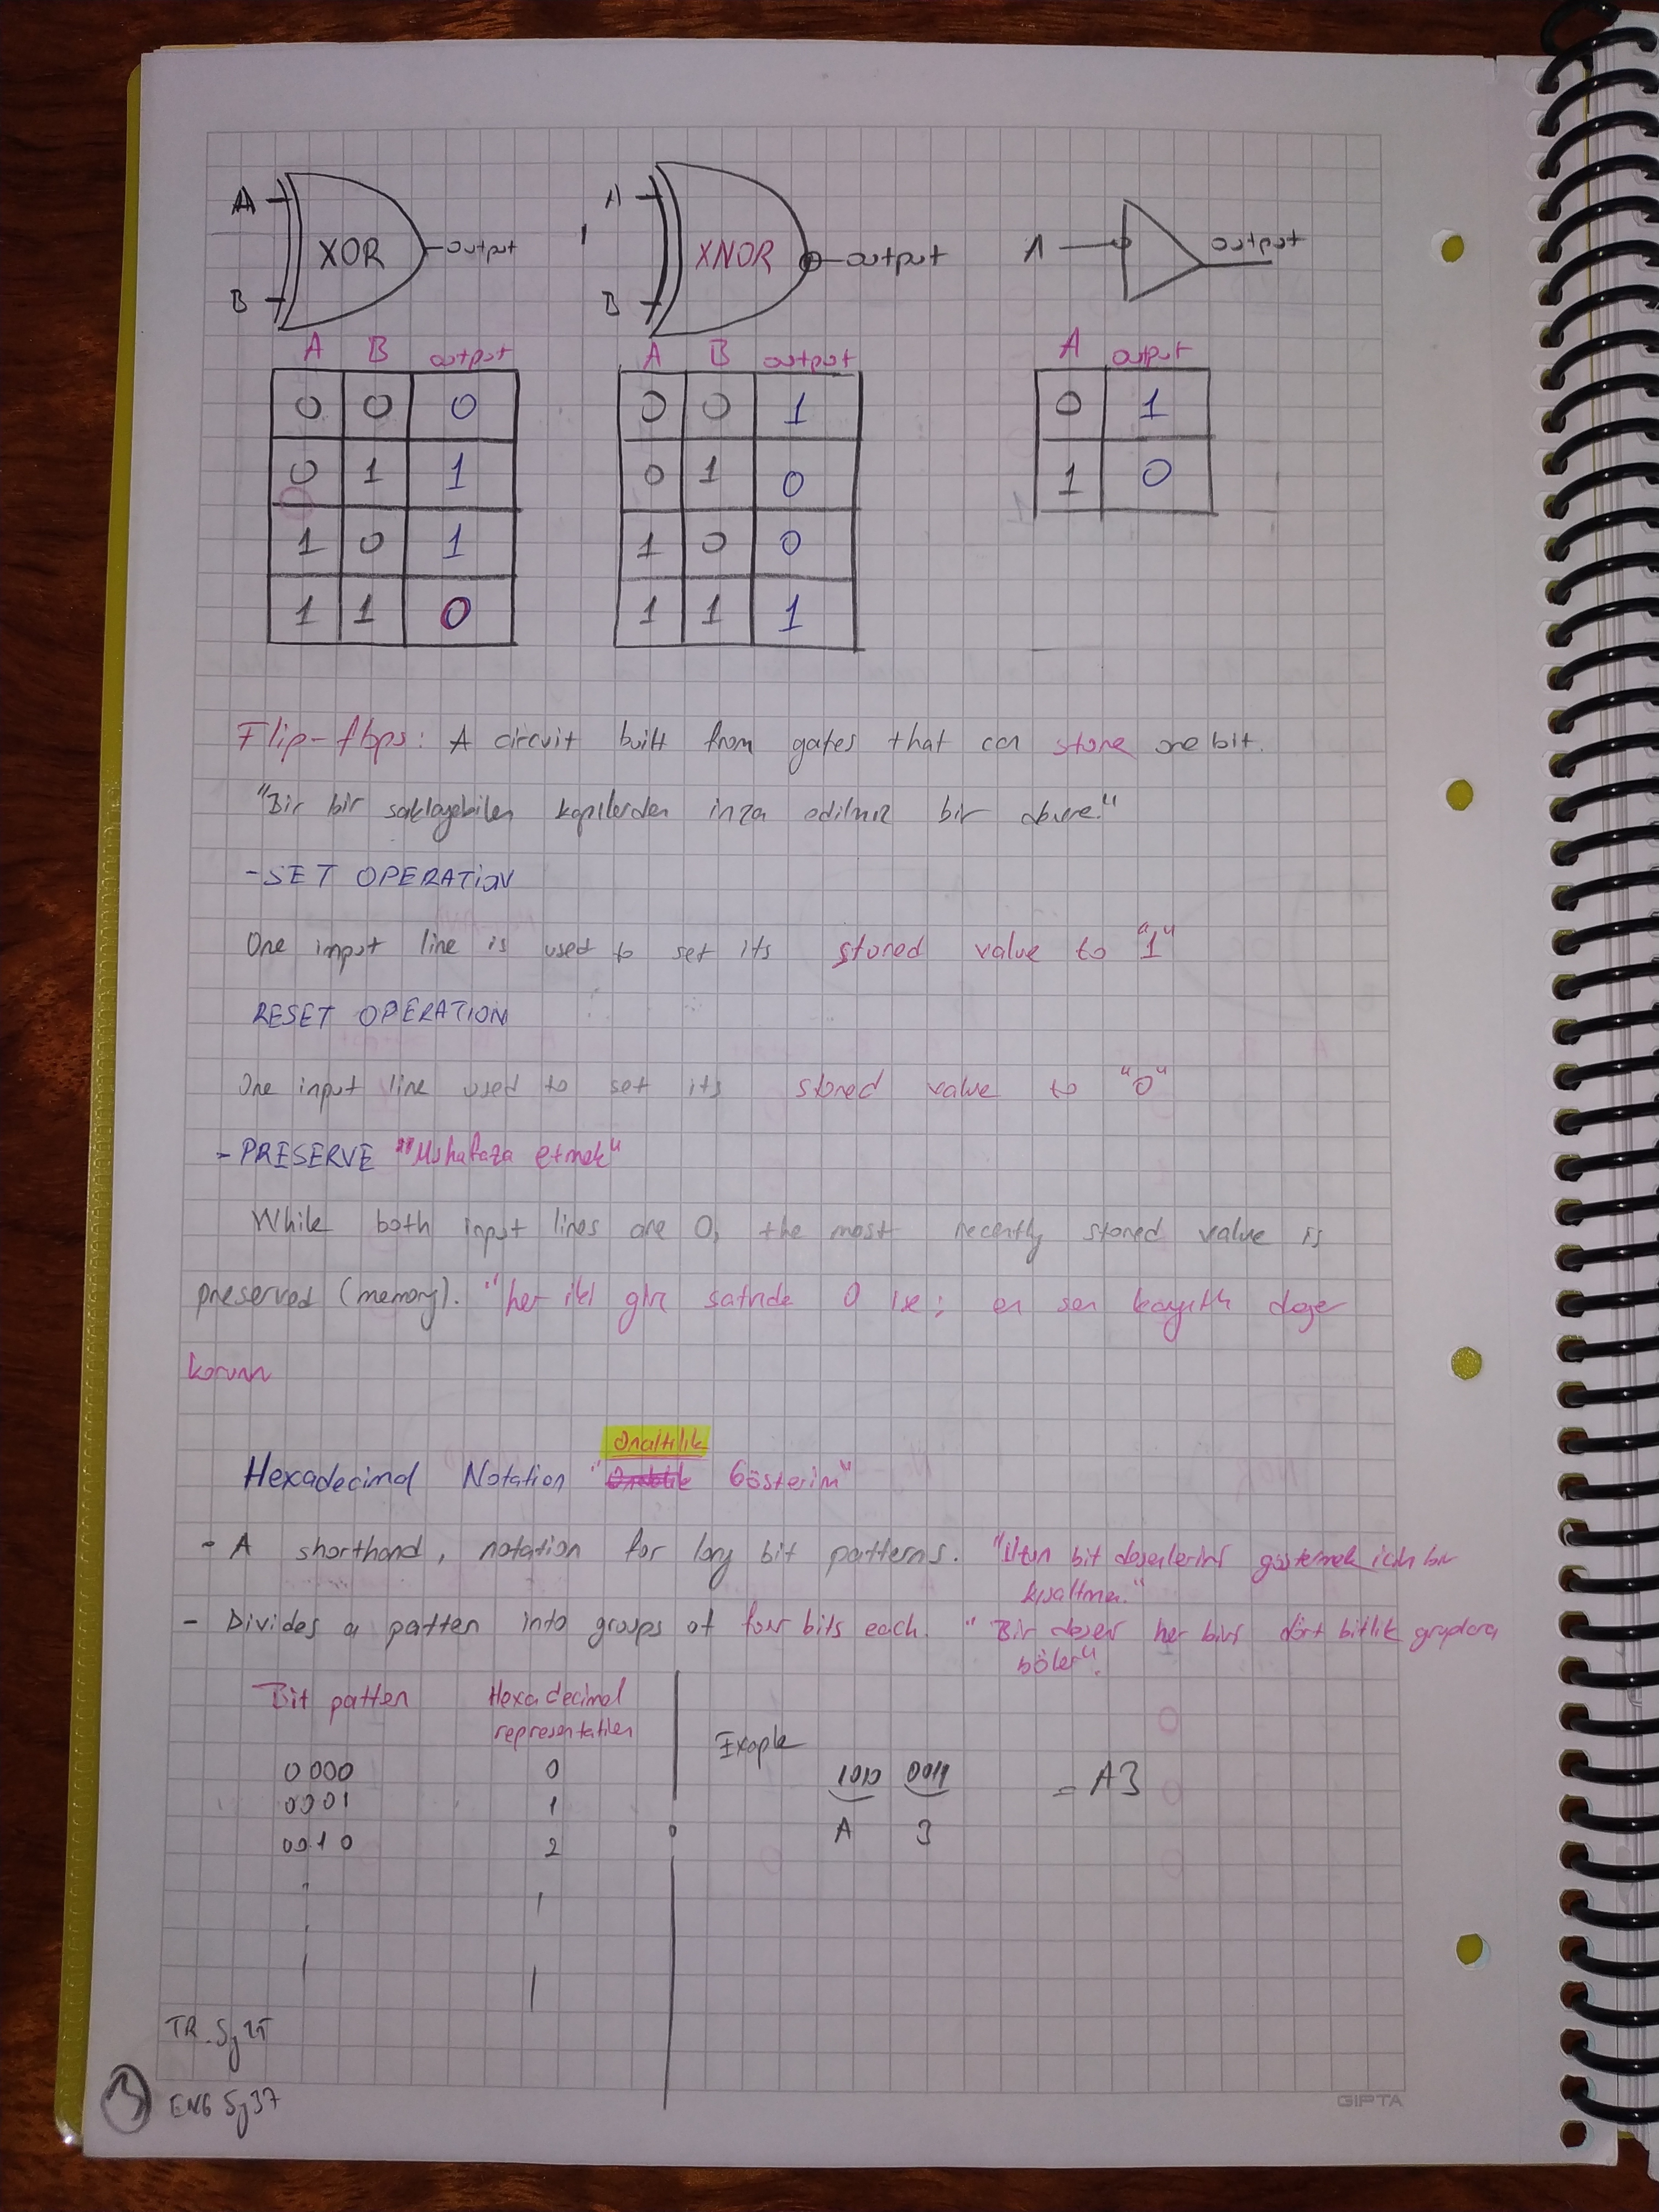 A
B
XOR
output
A
B
XNOR
output
A
output
A B output
0 0 0
0 1 1
1 0 1
1 1 0
A B output
0 0 1
0 1 0
1 0 0
1 1 1
A output
0 1
1 0
Flip-flops: A circuit built from gates that can store one bit.
"Bir bir saklayabilen kapılardan inşa edilmiş bir devre."
- SET OPERATION
One input line is used to set its stored value to "1"
RESET OPERATION
One input line used to set its stored value to "0"
- PRESERVE "Muhafaza etmek"
While both input lines are 0, the most recently stored value is
preserved (memory). "her iki giriş satırıda 0 ise; en son kayıtlı değer
korunur
Onaltılık
Hexadecimal Notation " Gösterim"
- A shorthand, notation for long bit patterns. "Uzun bit desenlerini göstermek için bir
kısaltma."
- Divides a patten into groups of four bits each. "Bir desen her biri dört bitlik gruplara
böler".
Bit patten
Hexadecimal
representation
0000 0
0001 1
0010 2
Exaple
1010 0011 = A3
A 3
TR Sy 25
ENG Sy 37
3
GIPTA